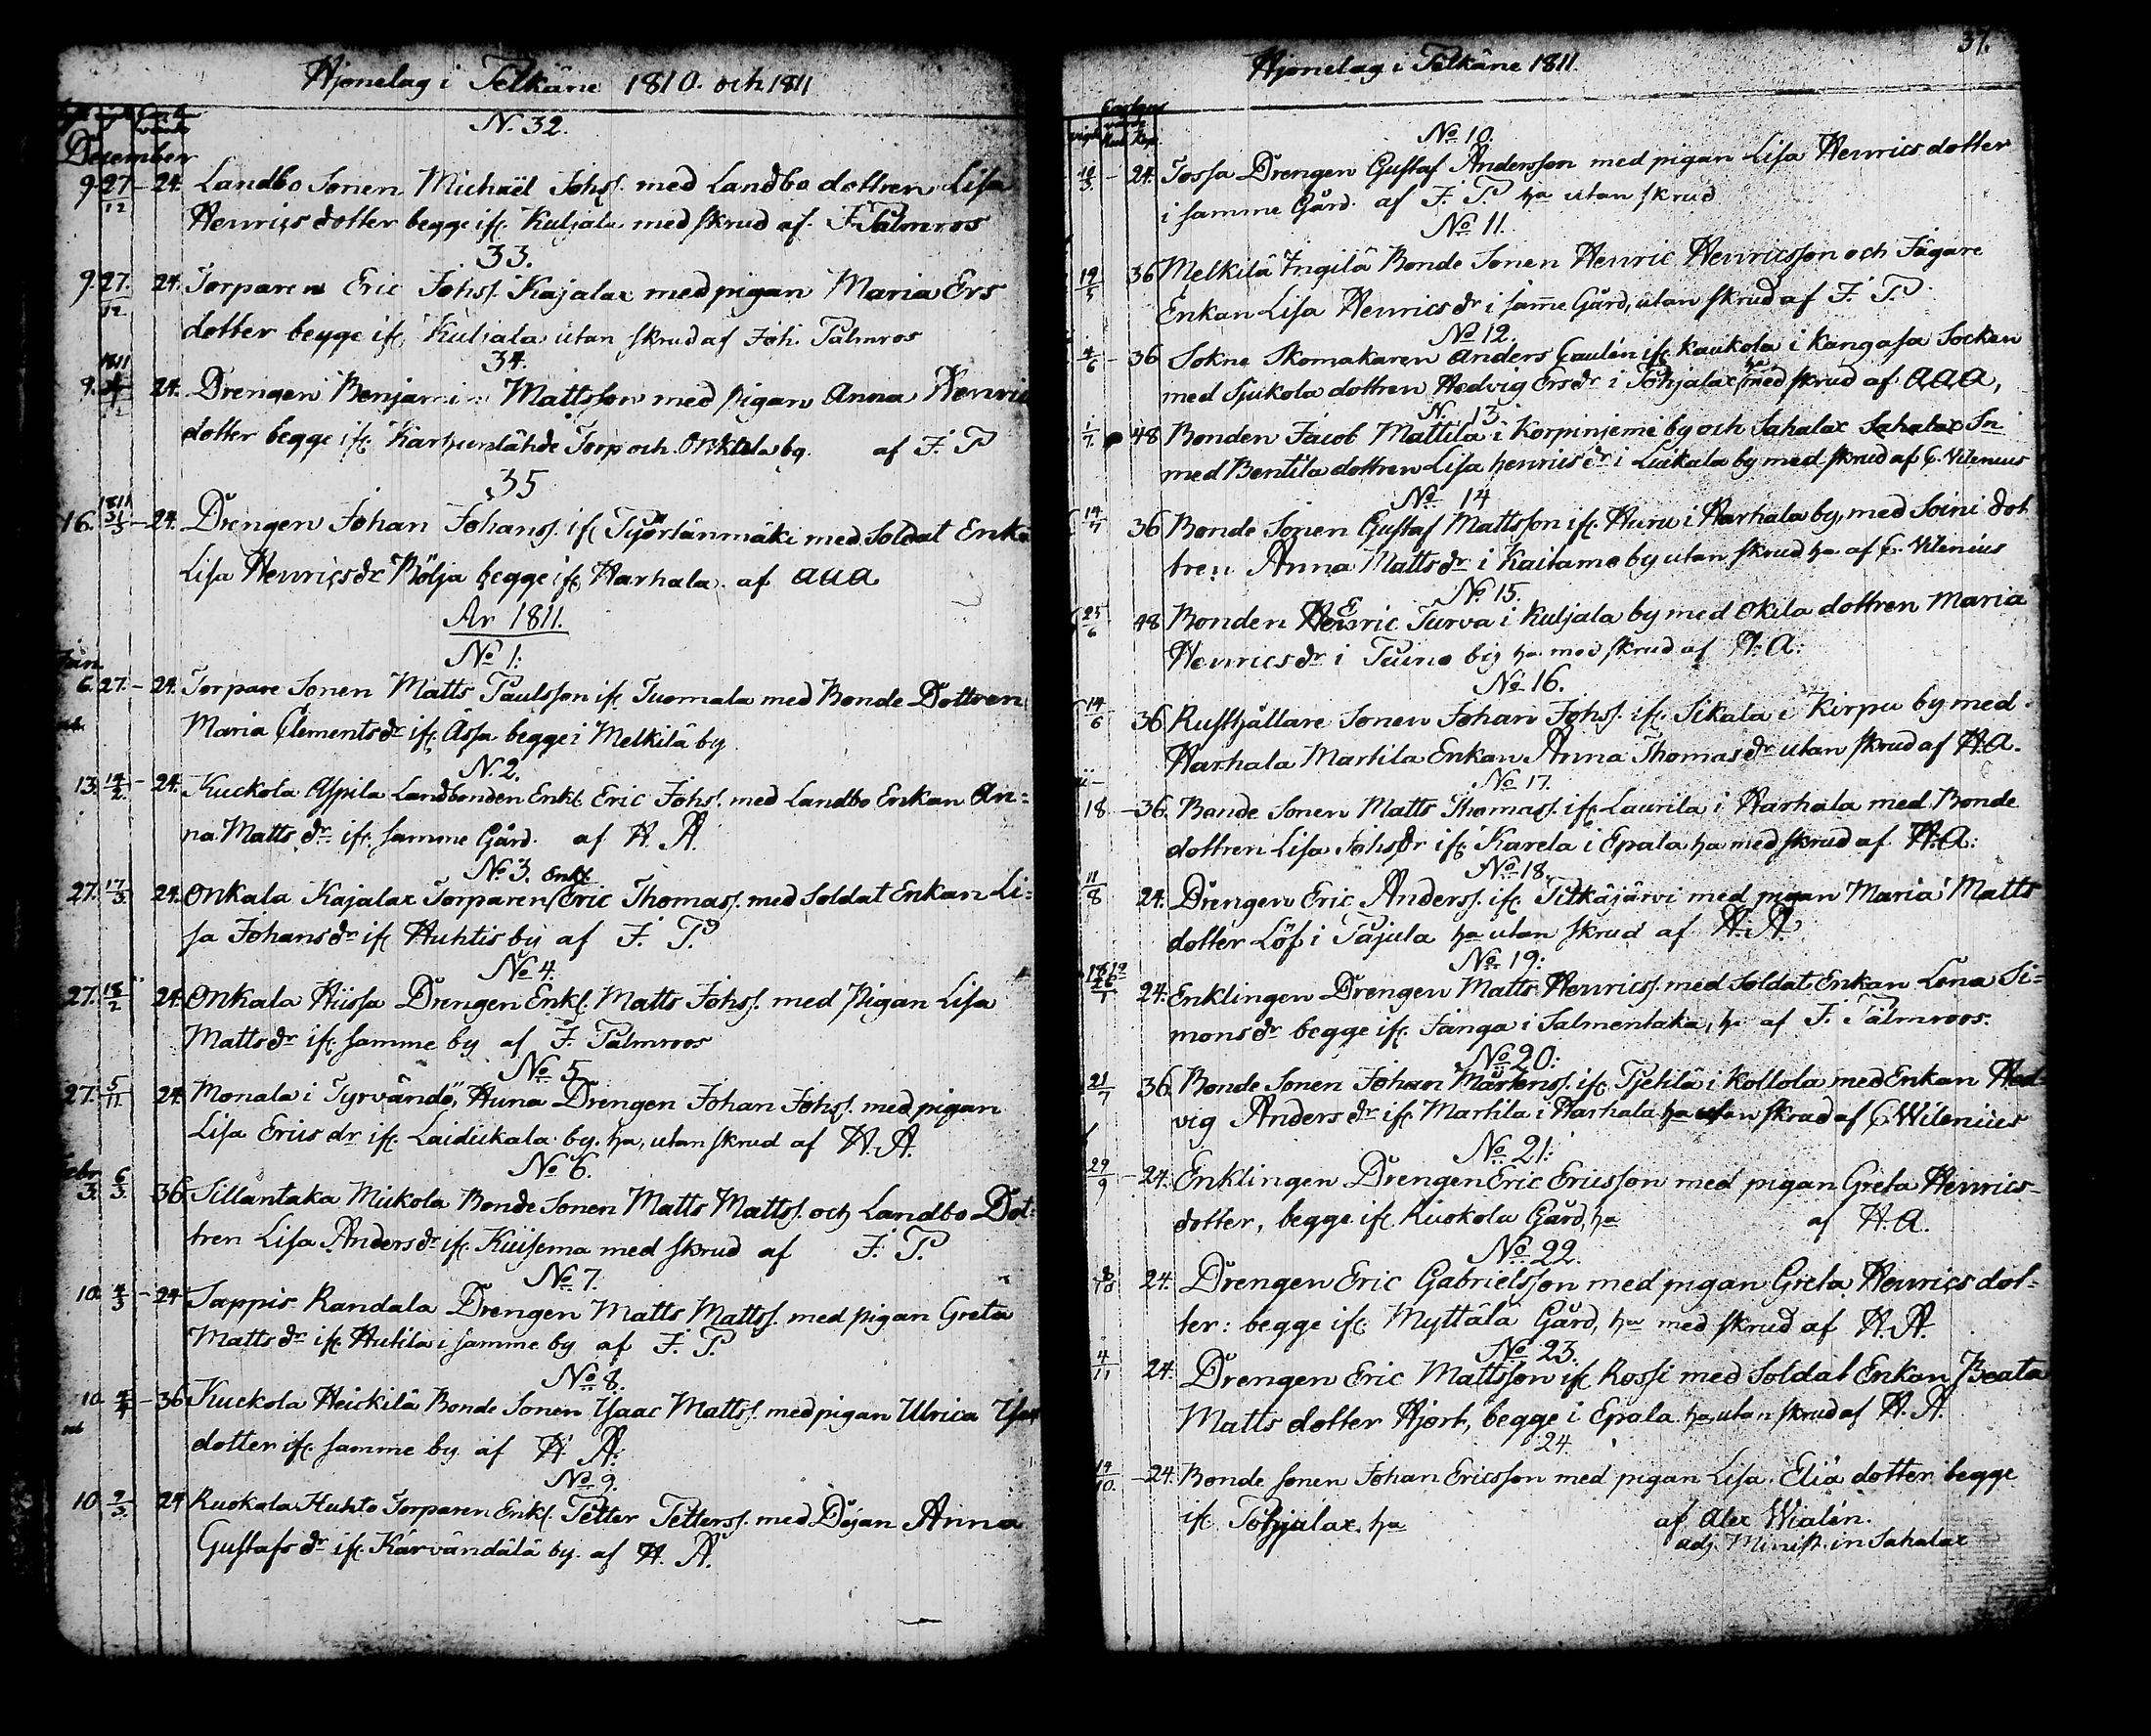 Hjonelag i Pelkäne 1810. och 1811
December
N. 32.
9. 27/12 - 24. Landbo Sonen Michaël Johs/. med Landbo dottren Lisa
Henrics dotter begge if/. Kuljala med skrud af J. Palmros
33.
9. 27./12. 24. Torparen Eric Johs/. Kajalax med pigan Maria Ers
dotter begge if/. Kuljala utan skrud af Joh. Palmros
34.
1811
9. 24. Drengen Benjamin Mattsson med pigan Anna Henrics
dotter begge if/. Karhunlähde Torp och Onkala by. af J. P
35
16. 1811 31/3 - 24. Drengen Johan Johans/. if/. Työrlänmäki med Soldat Enkan
Lisa Henricsdr Bölja begge if/. Harhala. af AAA
År 1811.
No 1:
Jan.
6. 27. - 24. Torpare Sonen Matts Paulsson if/. Tuomala med Bonde Dottren
Maria Clementsdr if/. Assa begge i Melkilä by
N. 2.
13. 14/2. - 24. Kuckola Aspila Landbonden Enkl. Eric Johs/. med Landbo Enkan An=
na Matts dr if/. samme Gård. af H. A.
No 3. Enkl.
27. 17/3. 24. Onkala Kajalax Torparen Eric Thomas/. med Soldat Enkan Li=
sa Johansdr if/. Huhtis by af J. P.
No 4.
27. 18/2 24. Onkala Hiissa Drengen Enkl. Matts Johs/. med Pigan Lisa
Mattsdr if/. samme by af J. Palmroos
No 5
27. 5/11. 24. Monala i Tyrvändö, Huna Drengen Johan Johs/. med pigan
Lisa Erics dr if/. Laidickala by. ha, utan skrud af H. A.
No 6.
Febr
3. 6/3. 36. Sillantaka Mickola Bonde Sonen Matts Matts/. och Landbo Dot=
tren Lisa Andersdr if/. Kuisema med skrud af J. P.
No 7.
10. 4/3 - 24 Sappis Randala Drengen Matts Matts/. med pigan Greta
Mattsdr if/. Hutila i samme by af J. P.
No 8.
10. - 36 Kuckola Heickilä Bonde Sonen Isaac Matts/. med pigan Ulrica Isac
dotter if/. samme by af H. A:
No 9.
10. 2/3. 24 Ruokola Huhto Torparen Enkl. Petter Petters/. med Pigan Anna
Gustafs dr if/. Kärvändälä by. af H. A.
Hjonelag i Pelkäne 1811.
37.
No 10.
10/3. - 24. Jossa Drengen Gustaf Andersson med pigan Lisa Henrics dotter
i samme Gård. af J. P. ha utan skrud
No 11.
19/5 36 Melkilä Ingilä Bonde Sonen Henric Henricsson och Jägare
Enkan Lisa Henricsdr i samme Gård, utan skrud af J. P
No 12.
4/6 - 36 Sokne Skomakaren Anders Caulén if/. Kaukola i Kangasa Socken
med Sjukola dottren Hedvig Ersdr i Pohjalax ha med skrud af AAA,
N. 13
1/7 48 Bonden Jacob Mattila i Korpiniemi by och Sahalax Sahalax Sn
med Bentila dottren Lisa henricsdr i Luikala by med skrud af C. Vilenius
No 14
14/7 36 Bonde Sonen Gustaf Mattsson if/. Huru i Harhala by, med Soini dot
tren Anna Mattsdr i Kaitamo by utan skrud ha af C. Vilenius
No 15.
25/6 48 Bonden Henric Turva i Kuljala by med Okila dottren Maria
Henricsdr i Puino by ha med skrud af H. A:
No 16.
14/6 36 Rusthållare Sonen Johan Johs/. if/. Sikala i Kirpu by med
Harhala Martila Enkan Anna Thomasdr utan skrud af H. A.
No 17.
18 - 36. Bonde Sonen Matts Thomas/. if/. Laurila i Harhala med Bonde
dottren Lisa Johsdr if/. Karela i Epala ha med skrud af H. A:
No 18.
11/8 24. Drengen Eric Anders/. if/. Pitkäjärvi med pigan Maria Matts
dotter Löf i Pajula ha utan skrud af H. A.
No 19:
1812 26/1 24. Enklingen Drengen Matts Henrics/. med Soldat Enkan Lena Si=
mons dr begge if/. Janga i Salmentaka, ha af J. Palmroos.
No 20:
21/7 36. Bonde Sonen Johan Mårtens/. if/. Pjetilä i Kollola med Enkan Hed
vig Anders dr if/. Martila i Harhala ha utan skrud af C. Wilenius
No 21:
29/9 - 24. Enklingen Drengen Eric Ericsson med pigan Greta Henrics-
dotter, begge if/. Ruokola Gård, ha af H. A.
No 22.
8/10 24. Drengen Eric Gabrielsson med pigan Greta Henrics dot-
ter: begge if/. Myttälä Gård, ha med skrud af H. A.
No 23.
4/11 24. Drengen Eric Mattsson if/. Rossi med Soldat Enkan Beata
Matts dotter Hjort, begge i Epala ha utan skrud af H. A.
24.
14/10. - 24. Bonde sonen Johan Ericsson med pigan Lisa Eliä dotter begge
if/. Pohjalax. ha af Alex Wialén.
adj. Minist. in Sahalax